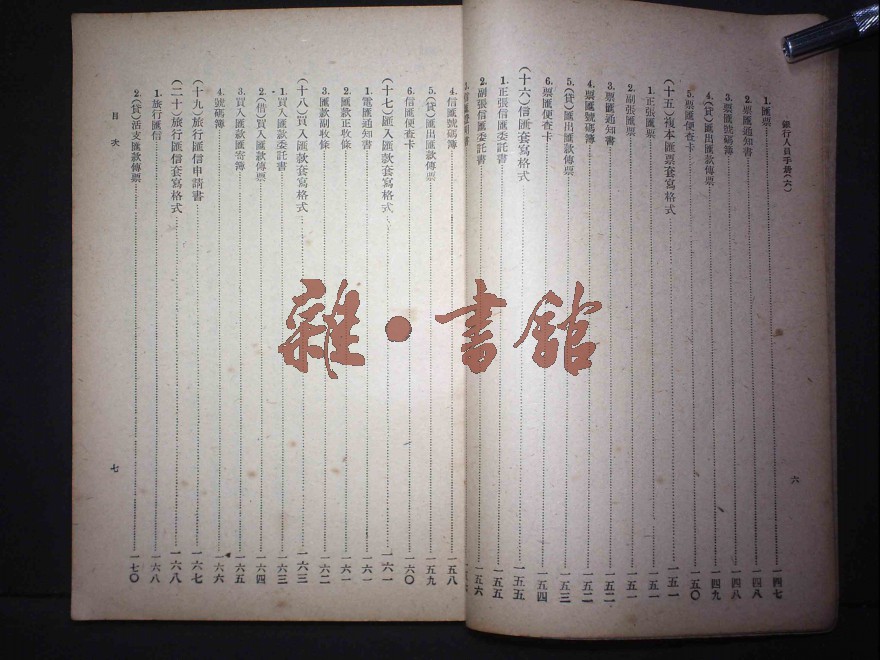 銀行人員手册(六)
1.匯票 一四七
2.票匯通知書 一四八
3.票匯號碼簿 一四八
4.(貸)匯出匯款傳票 一四九
5.票匯便查卡 一五〇
(十五)複本匯票套寫格式 一五一
1.正張匯票 一五一
2.副張匯票 一五一
3.票匯通知書 一五二
4.票匯號碼簿 一五二
5.(貸)匯出匯款傳票 一五三
6.票匯便查卡 一五四
(十六)信匯套寫格式 一五五
1.正張信匯委託書 一五五
2.副張信匯委託書 一五六
4.信匯號碼簿 一五八
5.(貸)匯出匯款傳票 一五九
6.信匯便查卡 一六〇
(十七)匯入匯款套寫格式 一六一
1.電匯通知書 一六一
2.匯款正收條 一六一
3.匯款副收條 一六二
(十八)買入匯款套寫格式 一六三
1.買入匯款委託書 一六三
2.(借)買入匯款傳票 一六四
3.買入匯款匯寄簿 一六五
4.號碼簿 一六六
(十九)旅行匯信申請書 一六七
(二十)旅行匯信套寫格式 一六八
1.旅行匯信 一六八
2.(貸)活支匯款傳票 一七〇
目次
七
六
雜·書館